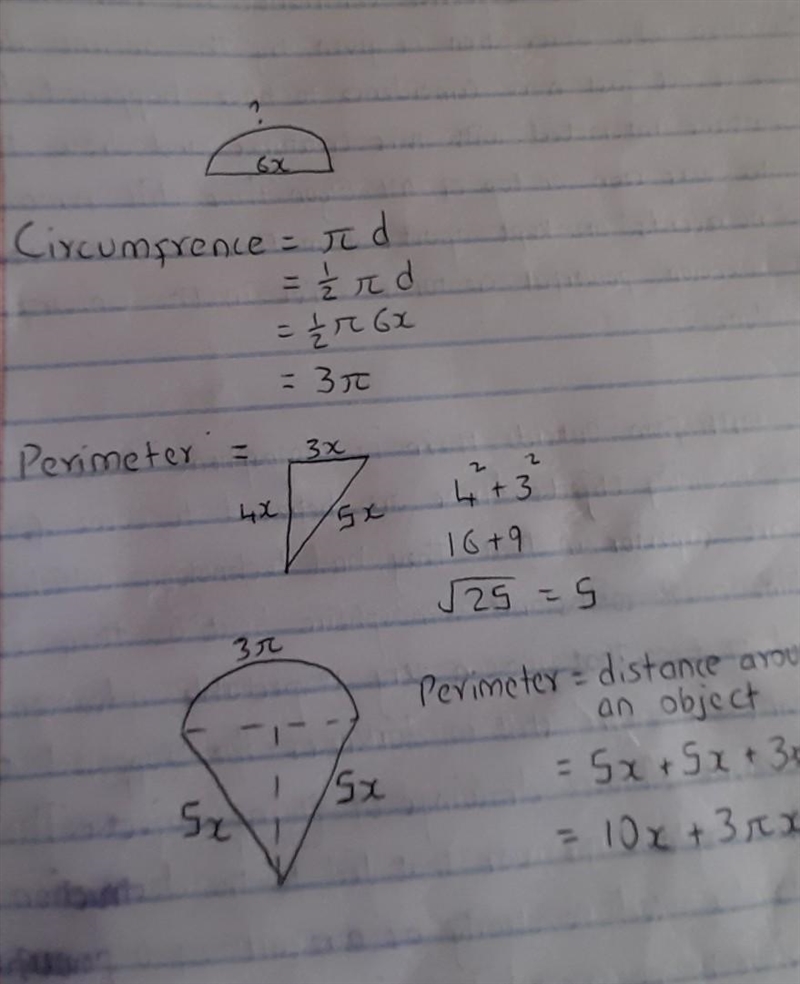 ?
6x
Circumfrence = π d
= 1/2 π d
= 1/2 π 6x
= 3π
Perimeter = 3x
4x 5x
4² + 3²
16+9
√25 = 5
3π
5x 5x
Perimeter = distance arou
an object
= 5x + 5x + 3π
= 10x + 3πx